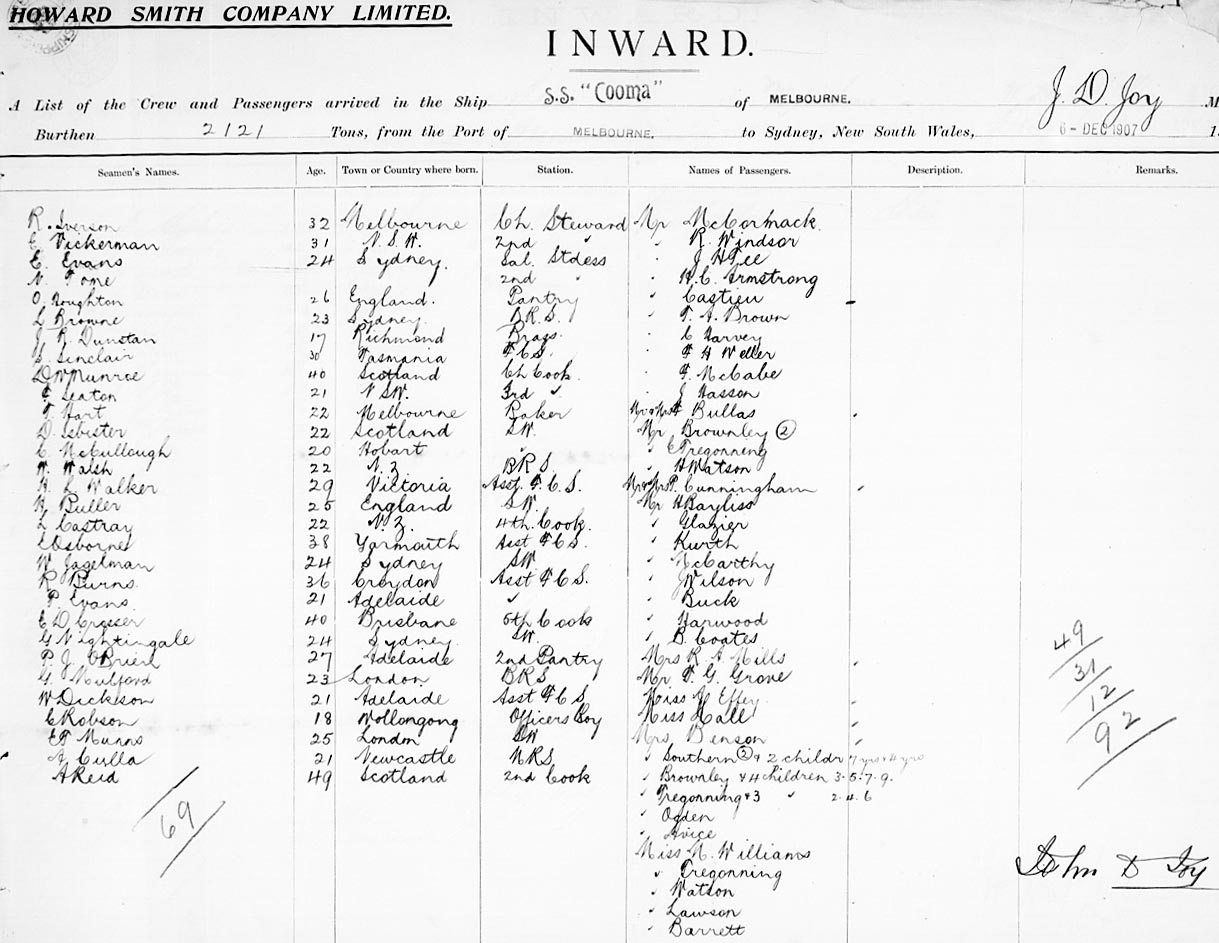 HOWARD SMITH COMPANY LIMITED.
INWARD.
A List of the Crew and Passengers arrived in the Ship S.S. "Cooma" of MELBOURNE. J. D. Joy M
Burthen 2121 Tons, from the Port of MELBOURNE. to Sydney, New South Wales, 6 - DEC 1907 1
Seamen's Names. Age. Town or Country where born. Station. Names of Passengers. Description. Remarks.
R. Iverson 32 Melbourne Ch. Steward Mr McCormack
E Vickerman 31 N.S.W. 2nd " " R. Windsor
E. Evans 24 Sydney. Sal. Stdess " J H Lee
N. Tone 2nd " " H. C. Armstrong
O. Houghton 26 England. Pantry " Castieu
L Browne 23 Sydney. B.R.S. " T. A. Brown
J. R. Dunstan 17 Richmond Brass " C Harvey
S. Sinclair 30 Tasmania F.C.S. " F H Weller
D W Munroe 40 Scotland Ch Cook " F. McCabe
F. Seaton 21 NSW. 3rd " " J Hasson
T. Hart 22 Melbourne Baker Mr & Mrs Bullas
D. Isbister 22 Scotland SW. Mr Brownley 2
C. McCullough 20 Hobart " " C Tregonning
W. Walsh 22 N.Z. BRS. " H Watson
H. L Walker 29 Victoria Asst. F.C.S. Mr & Mrs P. Cunningham
H. Buller 25 England SW. Mr H Bayliss
L Castray 22 N.Z. 4th. Cook. " Glazier
Osborne 38 Yarmouth Asst F.C.S. " Kurth
W Jagelman 24 Sydney SW " McCarthy
R Burns. 36 Croydon Asst F.C.S. " J Wilson
P. Evans. 21 Adelaide " " Buck
E D Crosser 40 Brisbane 5th Cook " Harwood
G Nightingale 24 Sydney. SW. " B. Coates
P. J. O'Brien 27 Adelaide 2nd Pantry Mrs R A Mills
G. Mulford 23 London BRS Mr F. G. Grove
W Dickeson 21 Adelaide Asst F.C.S Miss Effey
C Robson 18 Wollongong Officers Boy Miss Hall
E T Munns 25 London SW Mrs. Benson
A Culla 21 Newcastle NRS " Southern 2 & 2 childr 7 yrs & 4 yrs
A Reid 49 Scotland 2nd Cook " Brownley & 4 children 3. 5. 7. 9.
" Tregonning & 3 " 2. 4. 6
" Ogden
" Avice
Miss N. Williams
" Tregonning
" Watson
" Lawson
" Barrett
69
49
31
12
92
John D Joy